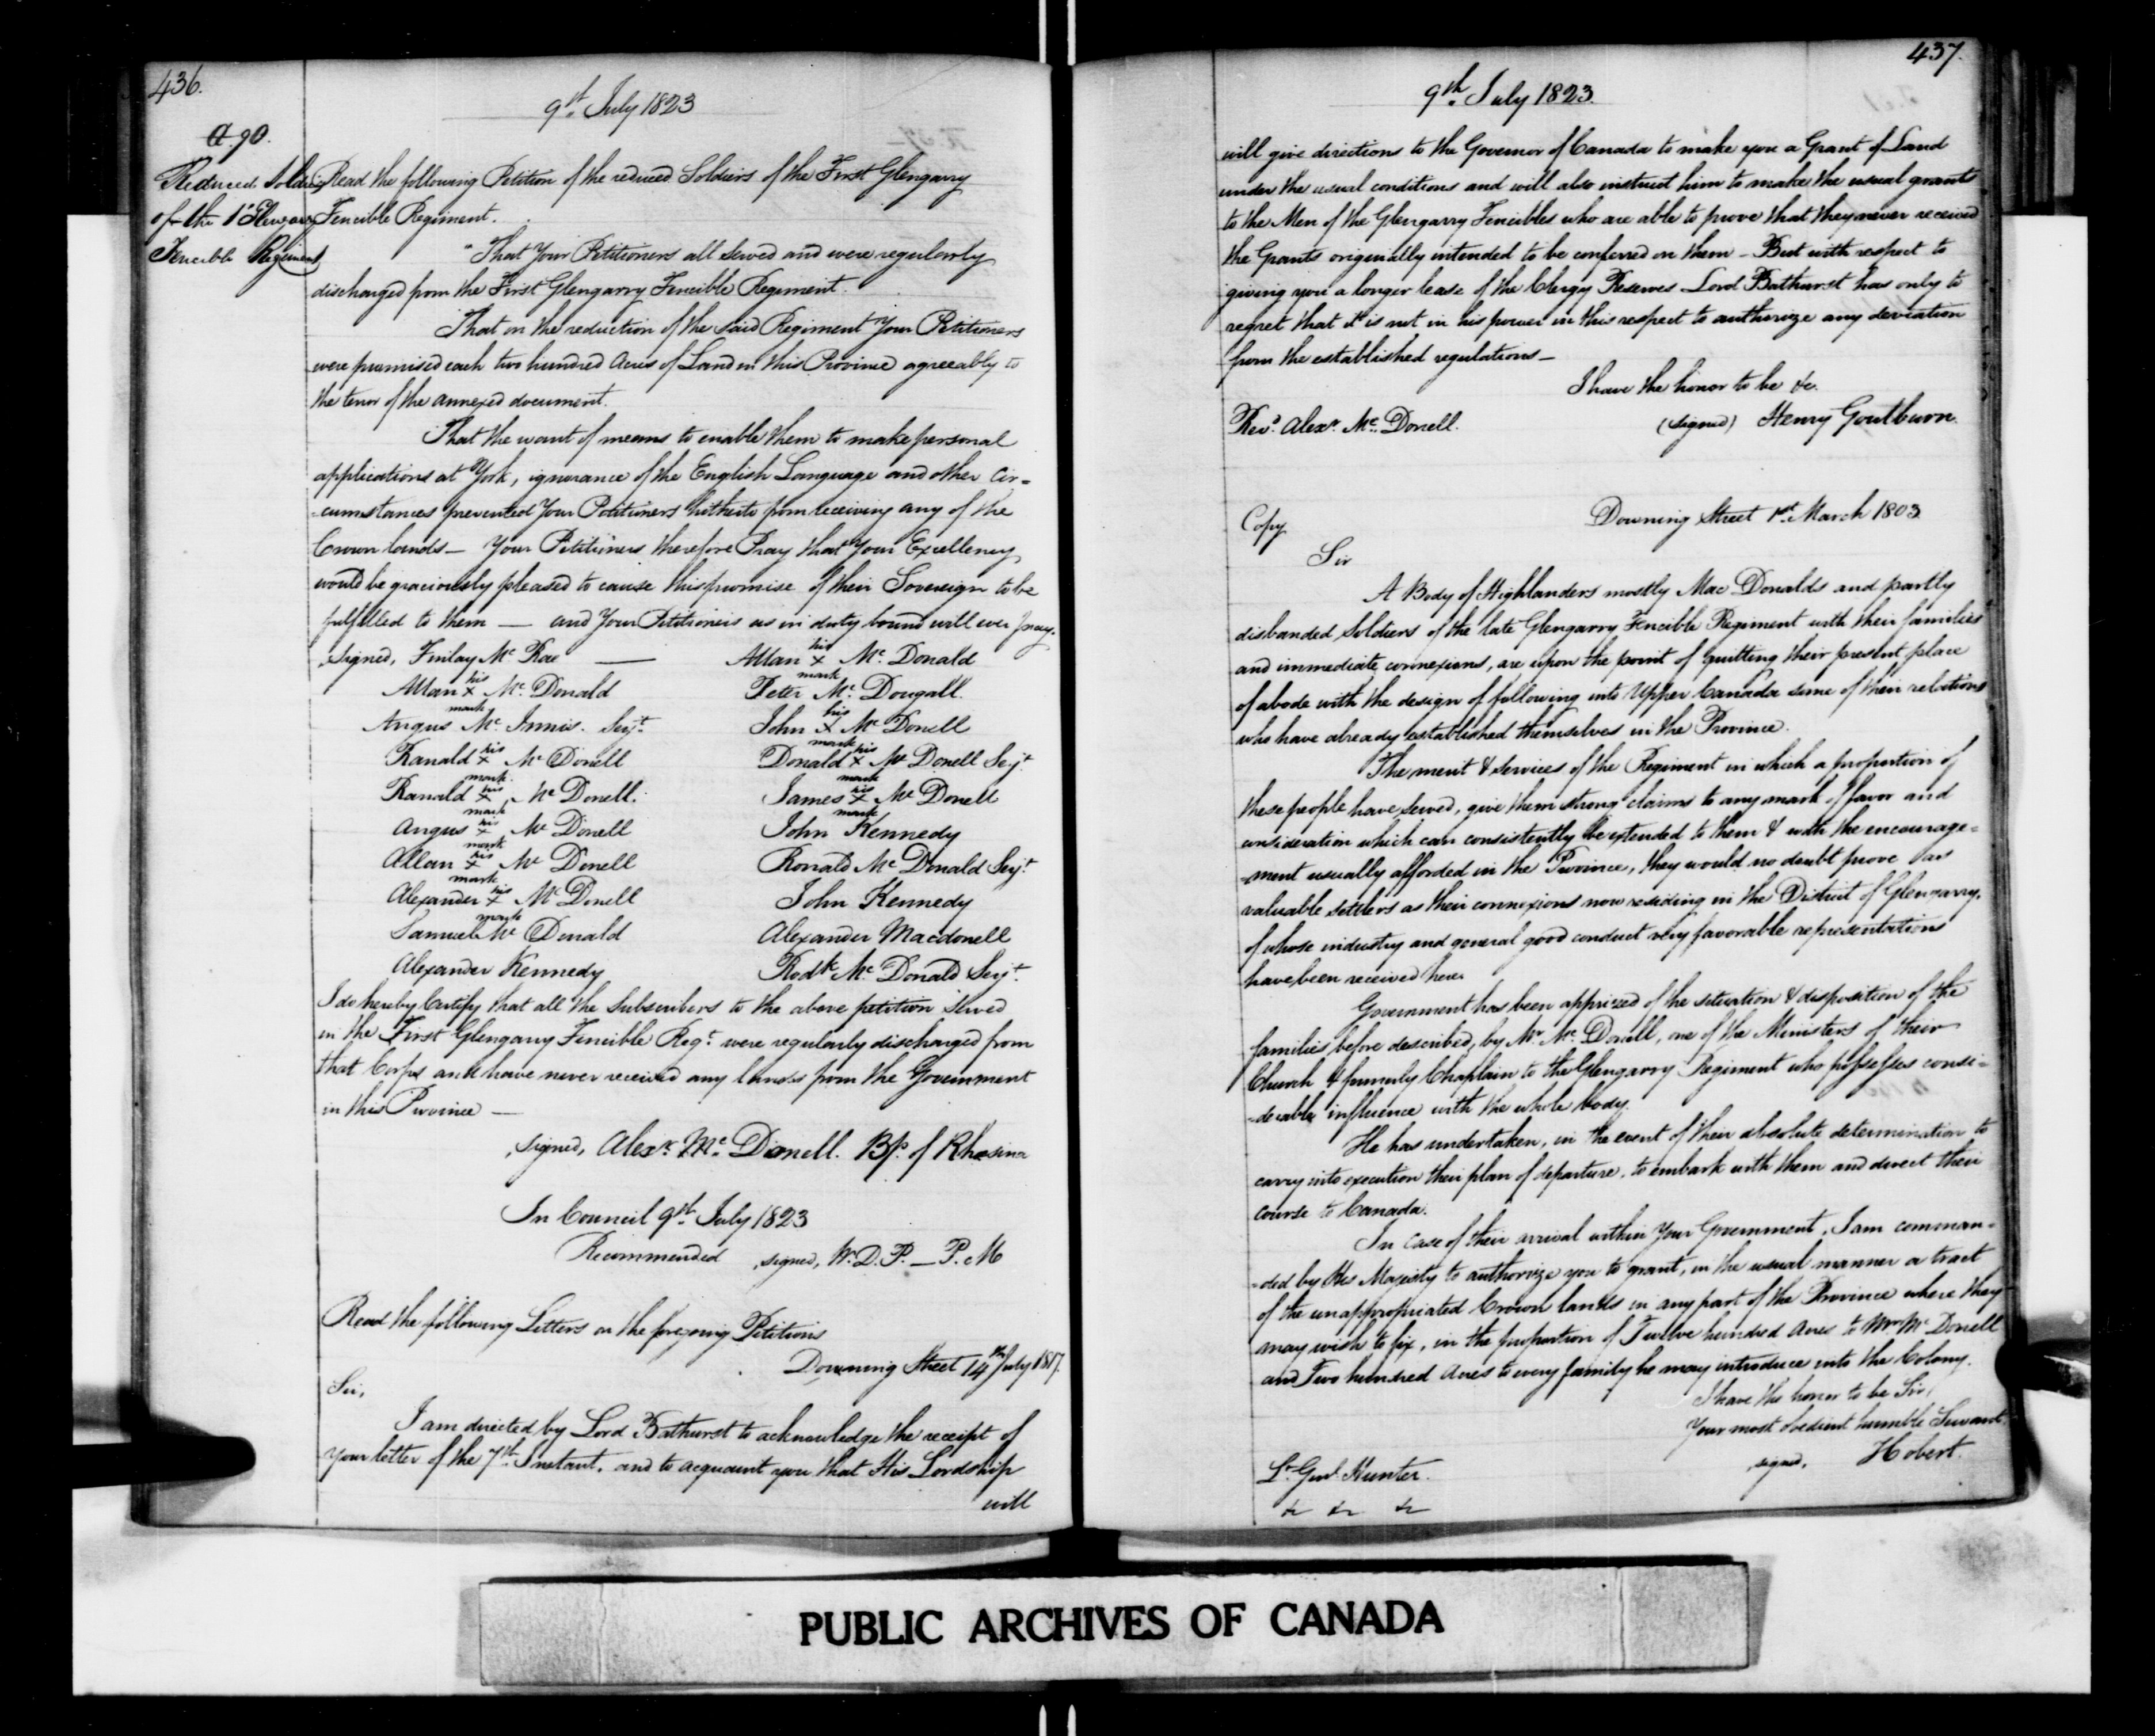 436.
9th July 1823
a. 90.
Reduced Soldiers
of the 1st Glengarry
Fencible Regiment
Read the following Petition of the reduced Soldiers of the First Glengarry
Fencible Regiment.
"That Your Petitioners all served and were regularly
discharged from the First Glengarry Fencible Regiment.
That on the reduction of the said Regiment Your Petitioners
were promised each two hundred Acres of Land in this Province agreeably to
the tenor of the annexed document.
That the want of means to enable them to make personal
applications at York, ignorance of the English Language and other Cir=
-cumstances prevented Your Petitioners hitherto from receiving any of the
Crown lands — Your Petitioners therefore Pray that Your Excellency
would be graciously pleased to cause this promise of their Sovereign to be
fulfilled to them — and Your Petitioners as in duty bound will ever pray.
signed, Finlay Mc Rae — Allan his x mark Mc Donald
Allan his x mark Mc Donald Peter Mc Dougall.
Angus Mc Innis. Serjt John his x mark Mc Donell
Ranald his x mark Mc Donell Donald his x mark Mc Donell Serjt
Ranald his x mark Mc Donell. James his x mark Mc Donell
Angus his x mark Mc Donell John Kennedy
Allan his x mark Mc Donell Ronald Mc Donald Serjt
Alexander his x mark Mc Donell John Kennedy
Samuel Mc Donald Alexander Macdonell
Alexander Kennedy Rodk Mc Donald Serjt
I do hereby Certify that all the Subscribers to the above petition served
in the First Glengarry Fencible Regt were regularly discharged from
that Corps and have never received any lands from the Government
in this Province —
signed, Alexr Mc Donell. Bp. of Rhesina
In Council 9th July 1823
Recommended signed, W. D. P. — P. M
Read the following Letters on the foregoing Petitions
Downing Street 14th July 1817.
Sir,
I am directed by Lord Bathurst to acknowledge the receipt of
your letter of the 7th Instant, and to acquaint you that His Lordship
will
437.
9th July 1823.
will give directions to the Governor of Canada to make you a Grant of Land
under the usual conditions and will also instruct him to make the usual grants
to the Men of the Glengarry Fencibles who are able to prove that they never received
the Grants originally intended to be conferred on them — But with respect to
giving you a longer lease of the Clergy Reserves Lord Bathurst has only to
regret that it is not in his power in this respect to authorize any deviation
from the established regulations —
I have the honor to be &c.
Revd. Alexr. Mc Donell. (signed) Henry Goulburn.
Copy Downing Street 1st March 1803
Sir
A Body of Highlanders mostly Mac Donalds and partly
disbanded Soldiers of the late Glengarry Fencible Regiment with their families
and immediate connexions, are upon the point of quitting their present place
of abode with the design of following into Upper Canada some of their relations
who have already established themselves in the Province.
The merit & services of the Regiment in which a proportion of
these people have served, give them strong claims to any mark of favor and
consideration which can consistently be extended to them & with the encourage=
-ment usually afforded in the Province, they would no doubt prove as
valuable settlers as their connexions now residing in the District of Glengarry,
of whose industry and general good conduct very favorable representations
have been received here.
Government has been apprized of the situation & disposition of the
families before described, by Mr. Mc Donell, one of the Ministers of their
Church & formerly Chaplain to the Glengarry Regiment who possesses consi=
-derable influence with the whole body.
He has undertaken, in the event of their absolute determination to
carry into execution their plan of departure, to embark with them and direct their
course to Canada.
In case of their arrival within Your Government, I am comman=
-ded by His Majesty to authorize you to grant, in the usual manner a tract
of the unappropriated Crown lands in any part of the Province where they
may wish to fix, in the proportion of Twelve hundred Acres to Mr Mc Donell
and Two hundred Acres to every family he may introduce into the Colony.
I have the honor to be Sir,
Your most obedient humble Servant.
signed, Hobert.
Lt. Genl. Hunter.
&c &c &c
PUBLIC ARCHIVES OF CANADA